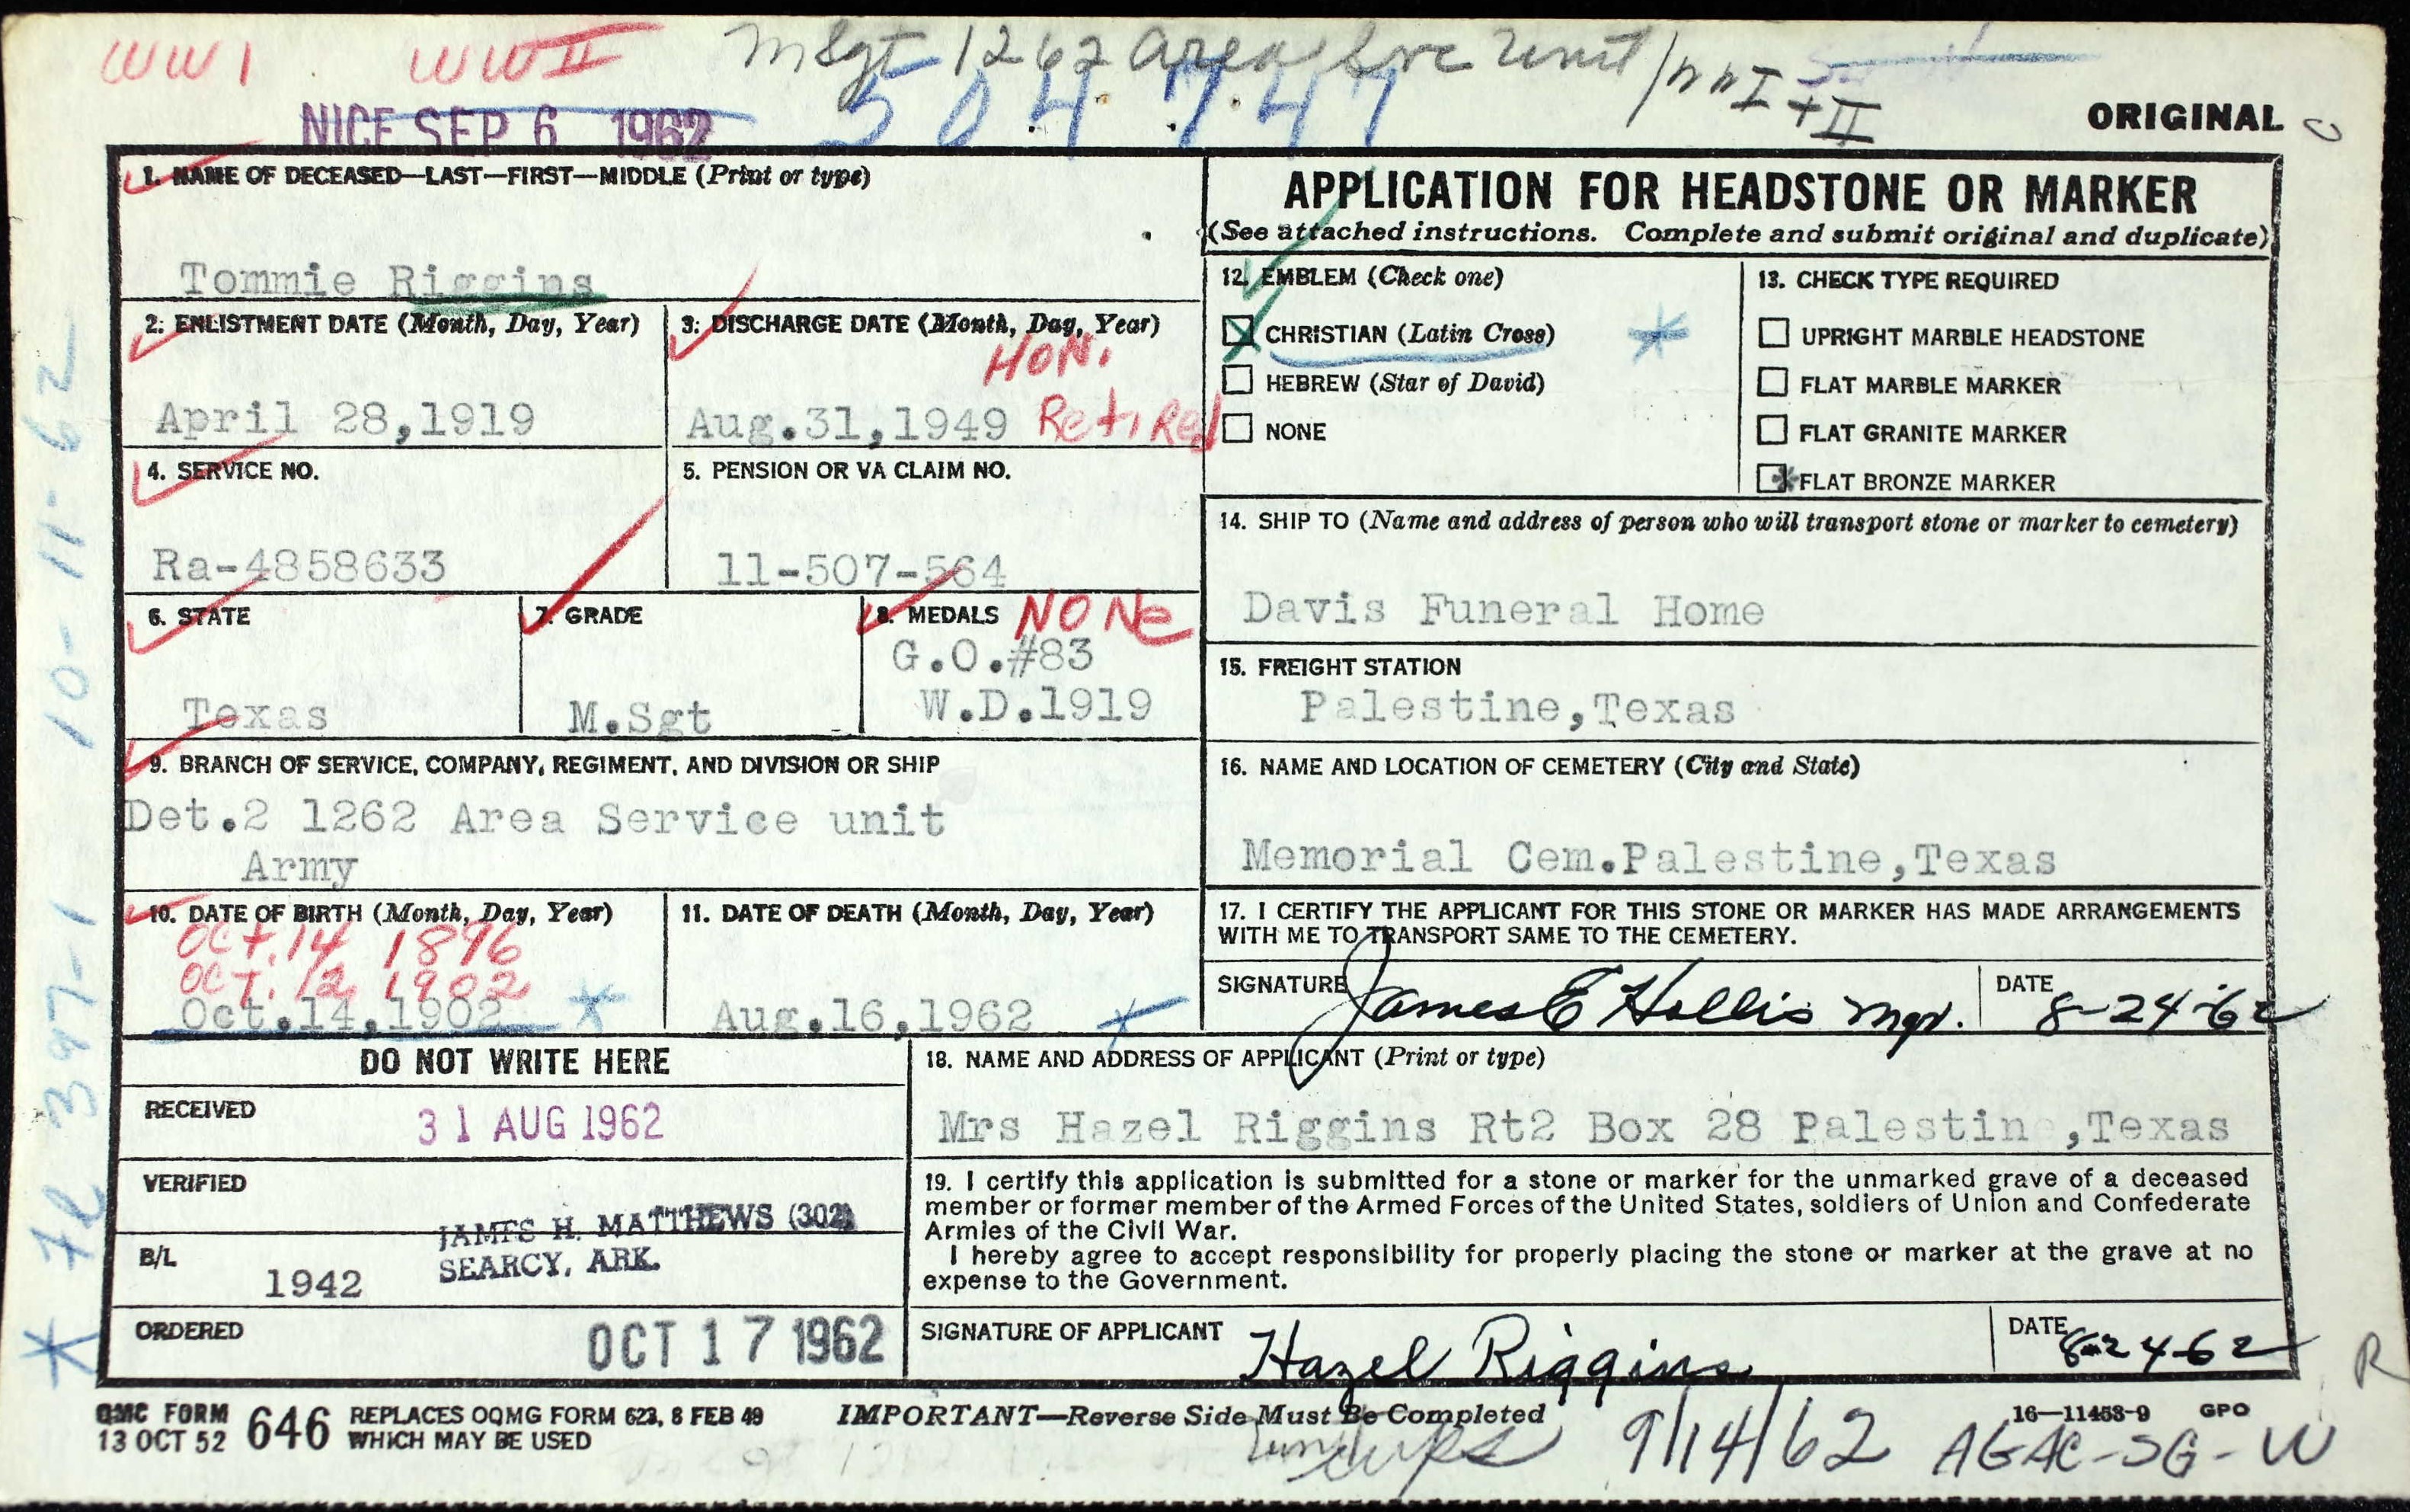 WW I WW II MSgt 1262 Area Svc Unit / WW I + II
NICE SEP 6 1962 504747
ORIGINAL
1. NAME OF DECEASED—LAST—FIRST—MIDDLE (Print or type)
Tommie Riggins
2. ENLISTMENT DATE (Month, Day, Year)
April 28,1919
3. DISCHARGE DATE (Month, Day, Year)
HON.
Aug.31,1949 Retired
4. SERVICE NO.
Ra-4858633
5. PENSION OR VA CLAIM NO.
11-507-564
6. STATE
Texas
7. GRADE
M.Sgt
8. MEDALS NONE
G.O.#83
W.D.1919
9. BRANCH OF SERVICE, COMPANY, REGIMENT, AND DIVISION OR SHIP
Det.2 1262 Area Service unit
Army
10. DATE OF BIRTH (Month, Day, Year)
Oct. 14 1896
Oct. 12 1902
Oct.14,1902
11. DATE OF DEATH (Month, Day, Year)
Aug.16,1962
APPLICATION FOR HEADSTONE OR MARKER
(See attached instructions. Complete and submit original and duplicate)
12. EMBLEM (Check one)
CHRISTIAN (Latin Cross)
HEBREW (Star of David)
NONE
13. CHECK TYPE REQUIRED
UPRIGHT MARBLE HEADSTONE
FLAT MARBLE MARKER
FLAT GRANITE MARKER
FLAT BRONZE MARKER
14. SHIP TO (Name and address of person who will transport stone or marker to cemetery)
Davis Funeral Home
15. FREIGHT STATION
Palestine,Texas
16. NAME AND LOCATION OF CEMETERY (City and State)
Memorial Cem.Palestine,Texas
17. I CERTIFY THE APPLICANT FOR THIS STONE OR MARKER HAS MADE ARRANGEMENTS
WITH ME TO TRANSPORT SAME TO THE CEMETERY.
SIGNATURE James E Hollis Mgr.
DATE 8-24-62
DO NOT WRITE HERE
RECEIVED 31 AUG 1962
VERIFIED
JAMES H. MATTHEWS (302)
SEARCY, ARK.
B/L 1942
ORDERED OCT 17 1962
18. NAME AND ADDRESS OF APPLICANT (Print or type)
Mrs Hazel Riggins Rt2 Box 28 Palestin ,Texas
19. I certify this application is submitted for a stone or marker for the unmarked grave of a deceased
member or former member of the Armed Forces of the United States, soldiers of Union and Confederate
Armies of the Civil War.
I hereby agree to accept responsibility for properly placing the stone or marker at the grave at no
expense to the Government.
SIGNATURE OF APPLICANT Hazel Riggins
DATE 8-24-62
R
QMC FORM
13 OCT 52 646 REPLACES OQMG FORM 623, 8 FEB 49
WHICH MAY BE USED
IMPORTANT—Reverse Side Must Be Completed
16—11453-9 GPO
9/14/62 AGAC-SG-W
10-11-62
397-1